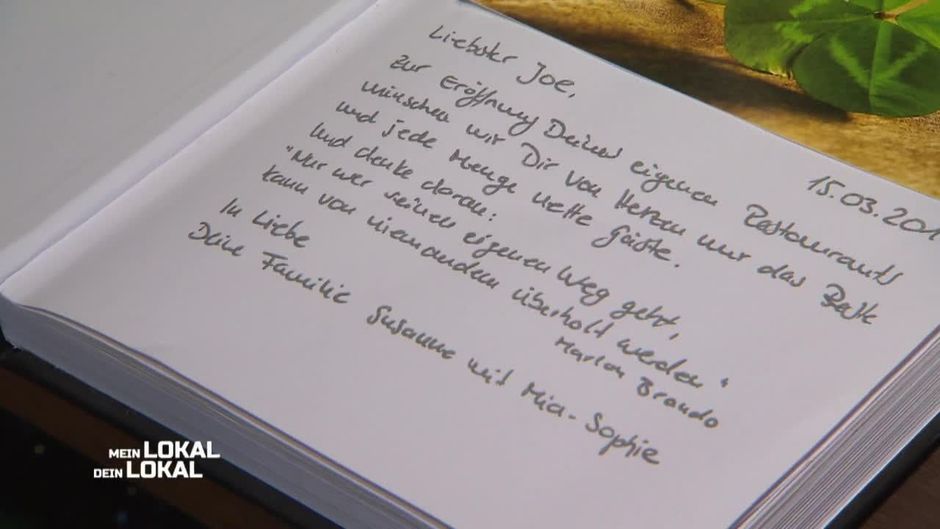 15.03.201
Liebster Joe,
zur Eröffnung Deines eigenen Restaurants
wünschen wir Dir von Herzen nur das Beste
und jede Menge nette Gäste.
Und denke daran:
"Nur wer seinen eigenen Weg geht,
kann von niemandem überholt werden"
Marlon Brando
In Liebe
Deine Familie Susanne mit Mia-Sophie
MEIN LOKAL
DEIN LOKAL